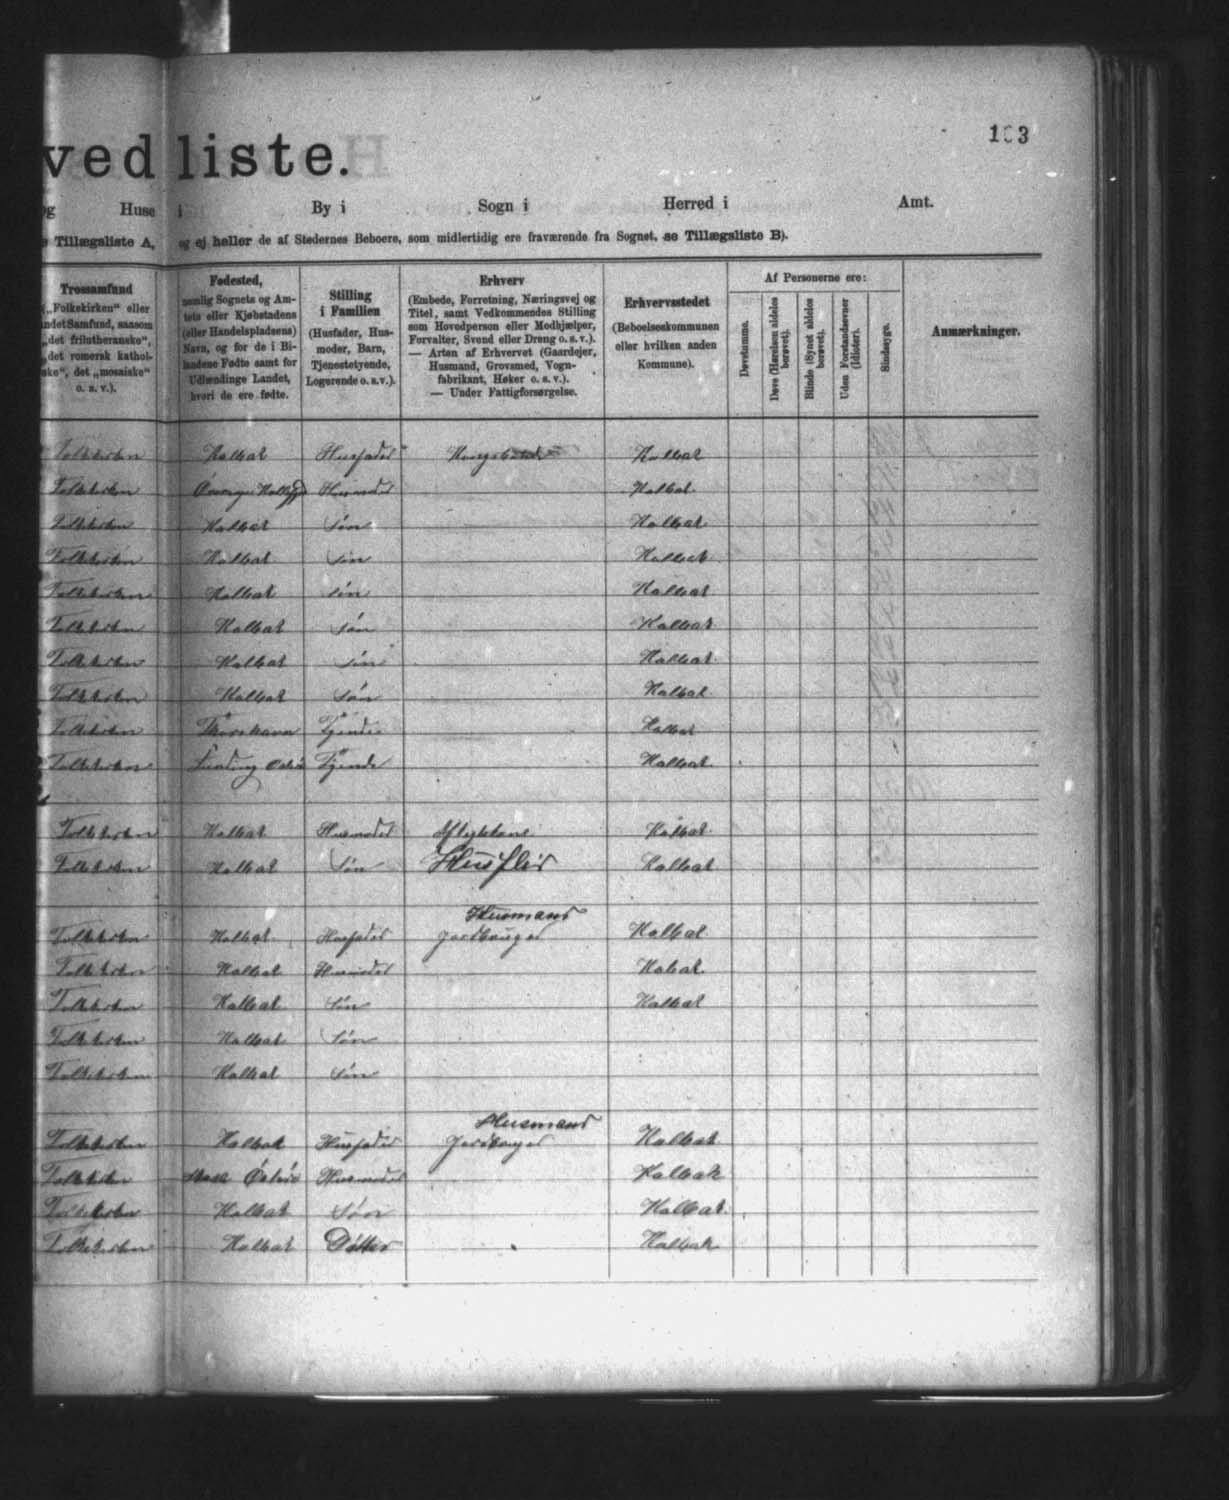 183
ved liste.
og Huse i By i Sogn i Herred i Amt.
Tillægsliste A, og ej heller de af Stedernes Beboere, som midlertidig ere fraværende fra Sognet, se Tillægsliste B).
Trossamfund
(„Folkekirken“ eller
andet Samfund, saasom
„det frilutheranske“,
„det romersk kathol-
ske“, det „mosaiske“
o. s. v.).
Fødested,
nemlig Sognets og Am-
tets eller Kjøbstadens
(eller Handelspladsens)
Navn, og for de i Bi-
landene Fødte samt for
Udlændinge Landet,
hvori de ere fødte.
Stilling
i Familien
(Husfader, Hus-
moder, Barn,
Tjenestetyende,
Logerende o. s. v.).
Erhverv
(Embede, Forretning, Næringsvej og
Titel, samt Vedkommendes Stilling
som Hovedperson eller Medhjælper,
Forvalter, Svend eller Dreng o. s. v.).
— Arten af Erhvervet (Gaardejer,
Husmand, Grovsmed, Vogn-
fabrikant, Høker o. s. v.).
— Under Fattigforsørgelse.
Erhvervsstedet
(Beboelseskommunen
eller hvilken anden
Kommune).
Af Personerne ere:
Døvstumme.
Døve (Hørelsen aldeles
berøvet).
Blinde (Synet aldeles
berøvet).
Uden Forstandsevner
(Idioter).
Sindssyge.
Anmærkninger.
Folkekirken Kalbak Husfader Kalbak
Folkekirken Husmoder Kalbak
Folkekirken Kalbak Søn Kalbak
Folkekirken Kalbak Søn Kalbak
Folkekirken Kalbak Søn Kalbak
Folkekirken Kalbak Søn Kalbak
Folkekirken Kalbak Søn Kalbak
Folkekirken Kalbak Søn Kalbak
Folkekirken Thorshavn Tjende Kalbak
Folkekirken Tjende Kalbak
Folkekirken Kalbak Husmoder Kalbak
Folkekirken Kalbak Søn Husflid Kalbak
Husmand
Folkekirken Kalbak Husfader Jordbruger Kalbak
Folkekirken Kalbak Husmoder Kalbak
Folkekirken Kalbak Søn Kalbak
Folkekirken Kalbak Søn
Folkekirken Kalbak Søn
Husmand
Folkekirken Kalbak Husfader Jordbruger Kalbak
Folkekirken Husmoder Kalbak
Folkekirken Kalbak Søn Kalbak
Folkekirken Kalbak Dotter Kalbak